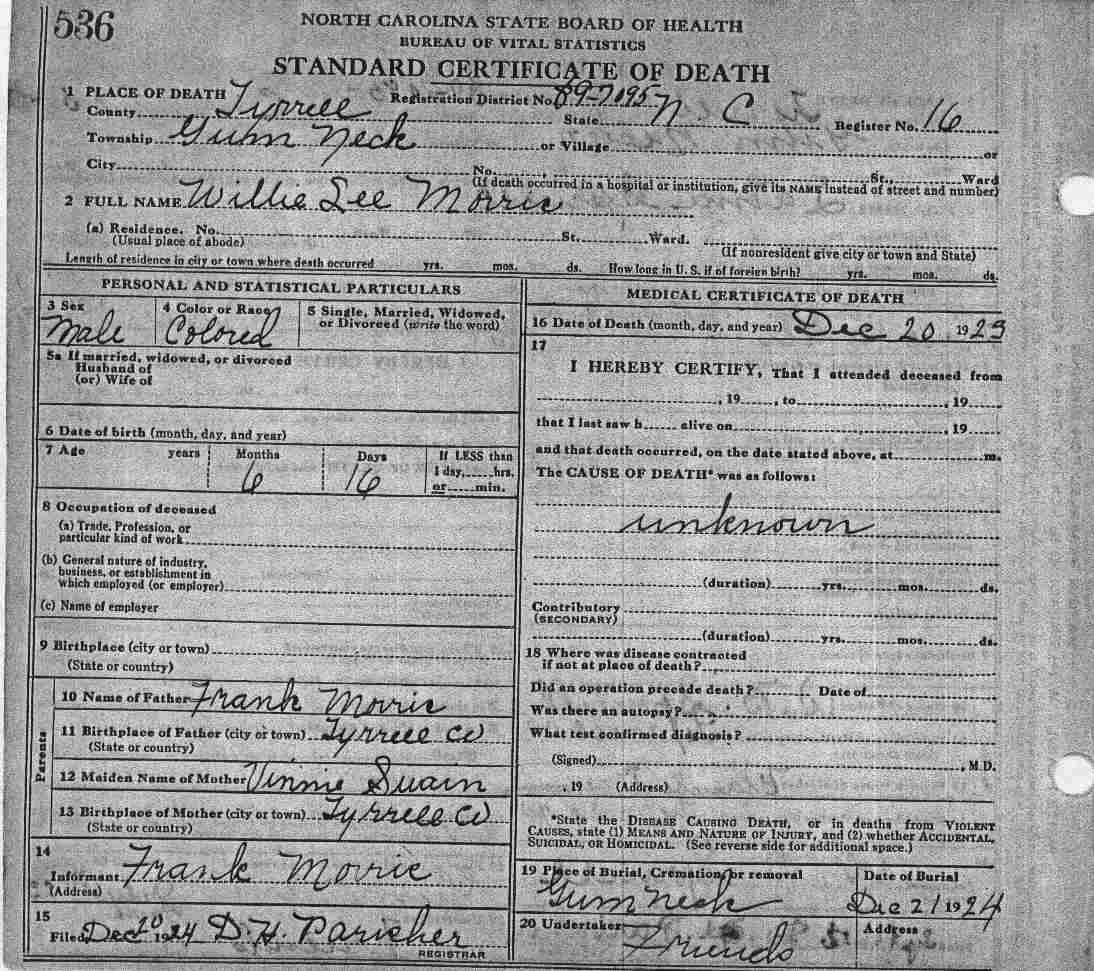 536
NORTH CAROLINA STATE BOARD OF HEALTH
BUREAU OF VITAL STATISTICS
STANDARD CERTIFICATE OF DEATH
1 PLACE OF DEATH Registration District No. 89-7095
County Tyrrell State N C Register No. 16
Township Gum Neck or Village or
City No. St., Ward
(If death occurred in a hospital or institution, give its NAME instead of street and number)
2 FULL NAME Willie Lee Morris
(a) Residence. No. St. Ward.
(Usual place of abode) (If nonresident give city or town and State)
Length of residence in city or town where death occurred yrs. mos. ds. How long in U. S. if of foreign birth? yrs. mos. ds.
PERSONAL AND STATISTICAL PARTICULARS
3 Sex Male
4 Color or Race Colored
5 Single, Married, Widowed,
or Divorced (write the word)
5a If married, widowed, or divorced
Husband of
(or) Wife of
6 Date of birth (month, day, and year)
7 Age years Months Days If LESS than
6 16 1 day, hrs.
or min.
8 Occupation of deceased
(a) Trade, Profession, or
particular kind of work
(b) General nature of industry,
business, or establishment in
which employed (or employer)
(c) Name of employer
9 Birthplace (city or town)
(State or country)
Parents
10 Name of Father Frank Morris
11 Birthplace of Father (city or town) Tyrrell Co
(State or country)
12 Maiden Name of Mother Vinnie Swain
13 Birthplace of Mother (city or town) Tyrrell Co
(State or country)
14
Informant Frank Morris
(Address)
15
Filed Dec 20 1924 D. H. Parisher
REGISTRAR
MEDICAL CERTIFICATE OF DEATH
16 Date of Death (month, day, and year) Dec 20 1923
17
I HEREBY CERTIFY, That I attended deceased from
, 19 , to , 19
that I last saw h alive on , 19
and that death occurred, on the date stated above, at m.
The CAUSE OF DEATH* was as follows:
unknown
(duration) yrs. mos. ds.
Contributory
(SECONDARY)
(duration) yrs. mos. ds.
18 Where was disease contracted
if not at place of death?
Did an operation precede death? Date of
Was there an autopsy?
What test confirmed diagnosis?
(Signed) , M.D.
, 19 (Address)
*State the DISEASE CAUSING DEATH, or in deaths from VIOLENT
CAUSES, state (1) MEANS AND NATURE OF INJURY, and (2) whether ACCIDENTAL,
SUICIDAL, OR HOMICIDAL. (See reverse side for additional space.)
19 Place of Burial, Cremation, or removal Date of Burial
Gum Neck Dec 21 1924
20 Undertaker Address
Friends